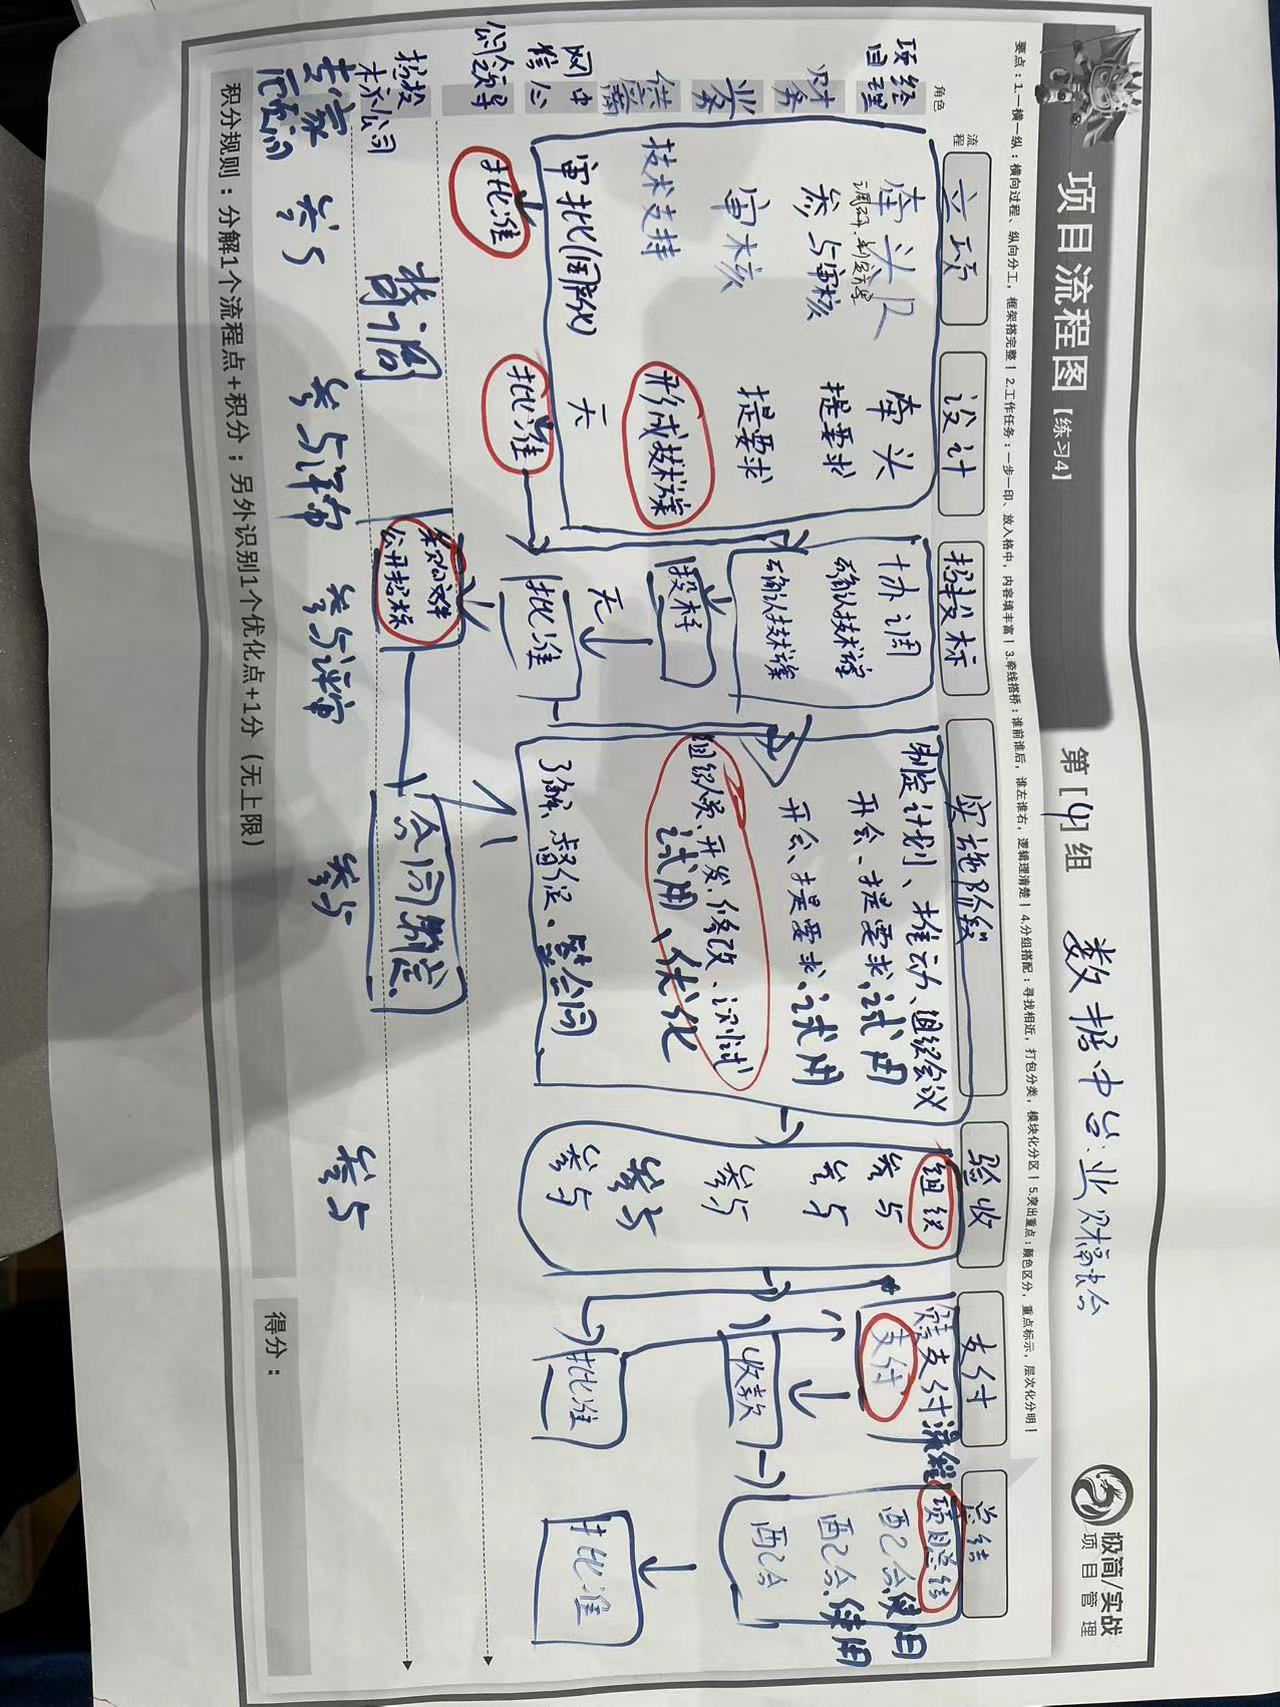 项目流程图【练习4】
第[4]组
数据中台：业财融合
极简/实战
项目管理
要点：1.一横一纵：横向过程、纵向分工，框架搭完整！2.工作任务：一步一印、放入格中，内容填丰富！3.牵线搭桥：谁前谁后，谁左谁右，逻辑理清楚！4.分组搭配：寻找相近，打包分类，模块化分区！5.突出重点：颜色区分，重点标示，层次化分明！
角色
流程
立项
设计
招投标
实施阶段
验收
支付
总结
项目经理
牵头人
调研、制定方案
牵头
协调
制定计划、推动、组织会议
组织
参与
支付流程
项目总结
财务
参与审核
提要求
确认技术方案
开会、提要求、试用
参与
支付
配合、使用
业务
审核
提要求
确认技术方案
开会、提要求、试用
参与
配合、使用
供应商
技术支持
形成技术方案
投标
组织人员、开发、修改、测试
试用、优化
参与
收款
配合
网信中心
审批(国网)
无
无
了解、督促、签合同
参与
批准
批准
公司领导
批准
批准
批准
招投标公司
采购文件
公开招标
合同制定
专家顾问
参与
参与评审
参与评审
参与
参与
积分规则：分解1个流程点+积分；另外识别1个优化点+1分（无上限）
得分：